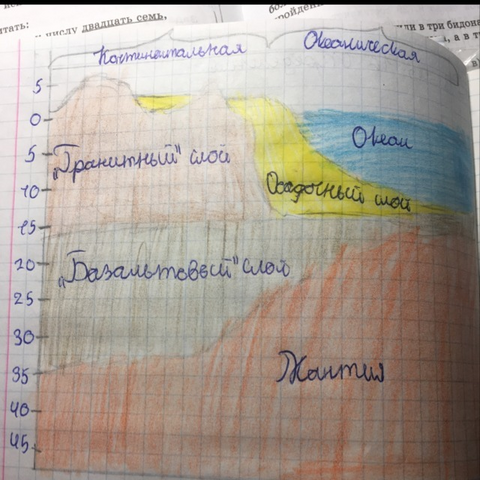 тать:
числу двадцать семь.
ли в три бидона
Континентальная
Океаническая
5
0
5
10
15
20
25
30
35
40
45
Океан
„Гранитный" слой
Осадочный слой
„Базальтовый" слой
Мантия